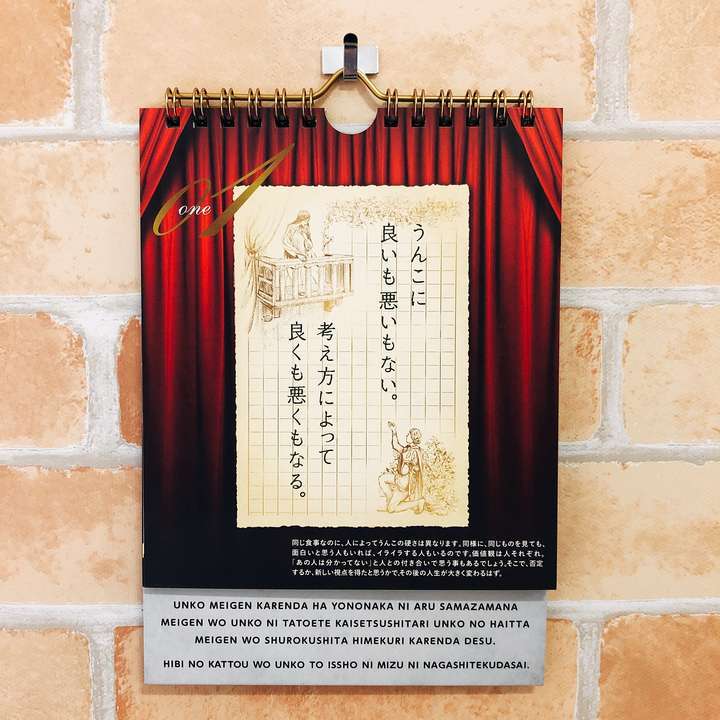 one 01
うんこに
良いも悪いもない。
考え方によって
良くも悪くもなる。
同じ食事なのに、人によってうんこの硬さは異なります。同様に、同じものを見ても、
面白いと思う人もいれば、イライラする人もいるのです。価値観は人それぞれ。
「あの人は分かってない」と人との付き合いで思う事もあるでしょう。そこで、否定
するか、新しい視点を得たと思うかで、その後の人生が大きく変わるはず。
UNKO MEIGEN KARENDA HA YONONAKA NI ARU SAMAZAMANA
MEIGEN WO UNKO NI TATOETE KAISETSUSHITARI UNKO NO HAITTA
MEIGEN WO SHUROKUSHITA HIMEKURI KARENDA DESU.
HIBI NO KATTOU WO UNKO TO ISSHO NI MIZU NI NAGASHITEKUDASAI.